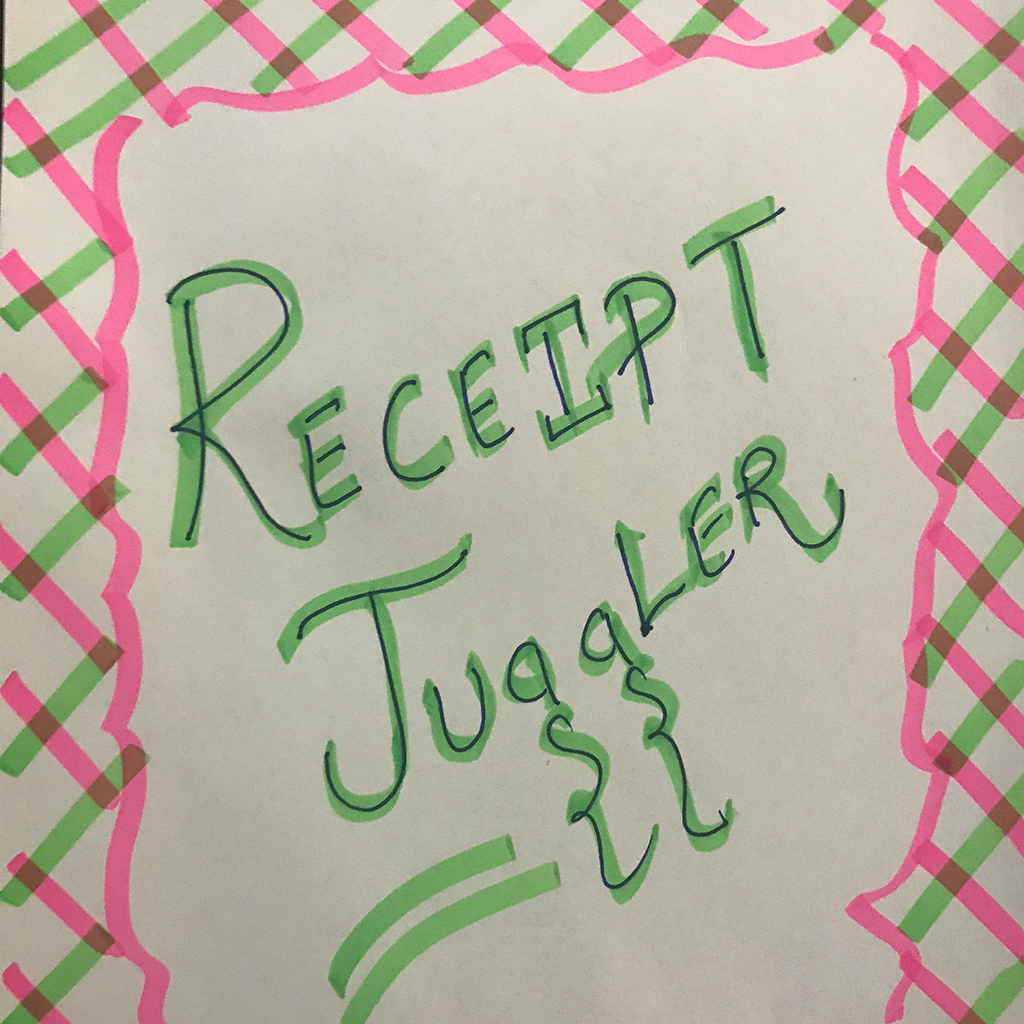 RECEIPT
JUggLER